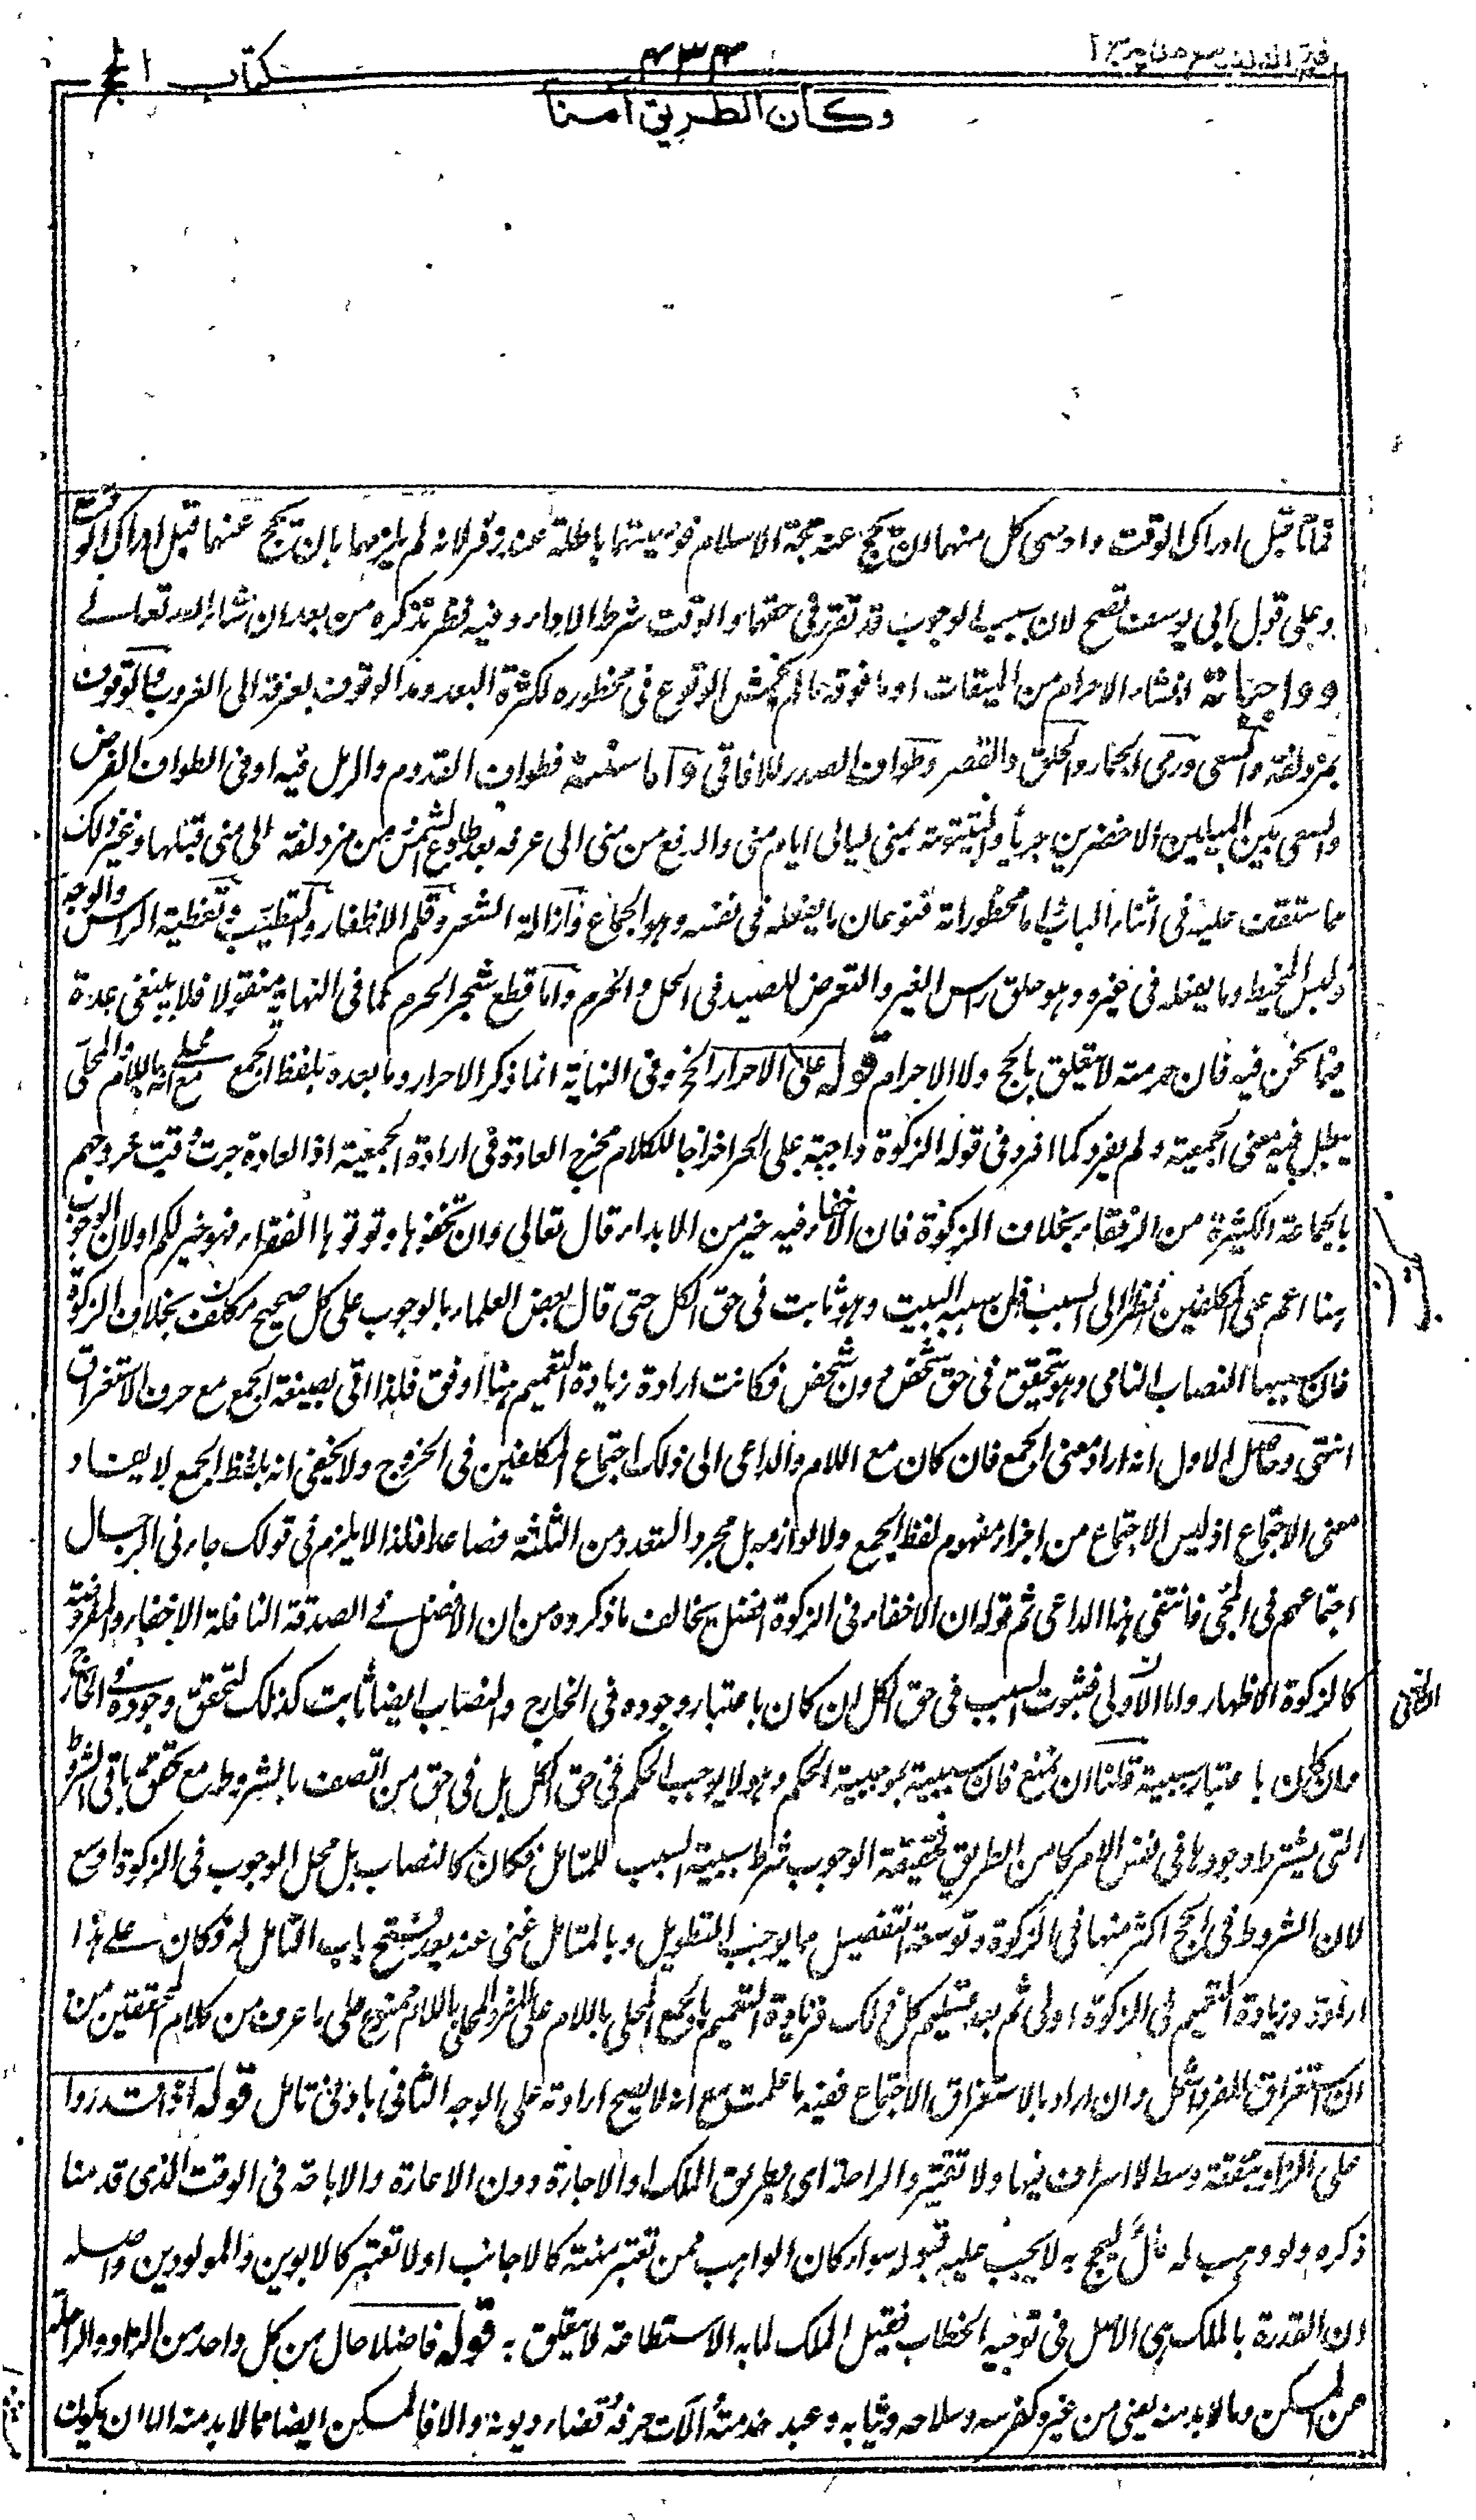 فتح القدير مع هدايه ج ١
٤٣٣
كتاب الحج
وكان الطريق آمنا
فماتا قبل ادراك الوقت واوصى كل منهما ان يحج عنه حجة الاسلام فوصيتهما باطلة عند زفر لانه لم يلزمهما بان يحج عنهما قبل ادراك الوقت
وعلى قول ابى يوسف تصح لان سبب الوجوب قد تقرر فى حقهما والوقت شرط الاداء وفيه نظر نذكره من بعد ان شاء الله تعالى
وواجباته انشاء الاحرام من الميقات او ما فوقه ما لم يخش الوقوع فى محظوره لكثرة البعد ومد الوقوف بعرفة الى الغروب والوقوف
بمزدلفة والسعى ورمى الجمار والحلق والقصر وطواف الصدر للافاقى واما سننه فطواف القدوم والرمل فيه او فى الطواف الفرض
والسعى بين الميلين الاخضرين جريا والبيتوتة بمنى ليالى ايام منى والدفع من منى الى عرفه بعد طلوع الشمس ومن مزدلفة الى منى قبلها وغير ذلك
مما ستقف عليه فى اثناء الباب واما محظوراته فنوعان ما يفعله فى نفسه وهو الجماع وازالة الشعر وقلم الاظفار والتطيب وتغطية الراس والوجه
ولبس المخيط وما يفعله فى غيره وهو حلق راس الغير والتعرض للصيد فى الحل والحرم واما قطع شجر الحرم كما فى النهاية منقولا فلا ينبغى عده
فيما نحن فيه فان حرمته لا تتعلق بالحج ولا الاحرام قوله على الاحرار الخ وفى النهاية انما ذكر الاحرار وما بعده بلفظ الجمع مع انه محلى باللام والمحلى
يبطل فيه معنى الجمعية ولم يفرد كما افرد فى قوله الزكوة واجبة على الحر اخراجا للكلام مخرج العادة فى ارادة الجمعية اذ العادة جرت وقت خروجهم
بالجماعة الكثيرة من الرفقاء بخلاف الزكوة فان الاخفاء فيه خير من الابداء قال تعالى وان تخفوها وتؤتوها الفقراء فهو خير لكم اولان الوجوب
هنا اعم على المكلفين نظرا الى السبب فان سببه البيت وهو ثابت فى حق الكل حتى قال بعض العلماء بالوجوب على كل صحيح مكلف بخلاف الزكوة
فان سببها النصاب النامى وهو يتحقق فى حق شخص دون شخص فكانت ارادة زيادة التعميم هنا اوفق فلذا اتى بصيغة الجمع مع حرف الاستغراق
انتهى وحاصل الاول انه اراد معنى الجمع فان كان مع اللام والداعى الى ذلك اجتماع المكلفين فى الخروج ولا يخفى انه بلفظ الجمع لا يفاد
معنى الاجتماع اذ ليس الاجتماع من اجزاء مفهوم لفظ الجمع ولا لوازمه بل مجرد التعدد من الثلثة فصاعدا فلذا لا يلزم فى قولك جاءنى الرجال
اجتماعهم فى المجئ فانتفى هذا الداعى ثم قوله ان الاخفاء فى الزكوة افضل يخالف ما ذكروه من ان الافضل فى الصدقة النافلة الاخفاء والمفروضة
كالزكوة الاظهار واما الاولى فثبوت السبب فى حق الكل ان كان باعتبار وجوده فى الخارج والنصاب ايضا ثابت كذلك لتحقق وجوده فى الخارج
وان كان باعتبار سببيته قلنا ان نمنع فان سببيته بموجبيته الحكم وهو لا يوجب الحكم فى حق الكل بل فى حق من اتصف بالشروط مع تحقق باقى الشروط
التى يشترط وجودها فى نفس الامر كامن الطريق فحقيقة الوجوب شرط سببية السبب للمتامل فكان كالنصاب بل محل الوجوب فى الزكوة اوسع
لان الشروط فى الحج اكثر منها فى الزكوة وتوسعة التفصيل مما يوجب التطويل وبالمتامل غنى عنه بعد فتح باب التامل له فكان على هذا
ارادة زيادة التعميم فى الزكوة اولى ثم بعد تسليم كل ذلك فزيادة التعميم بالجمع المحلى باللام على المفرد المحلى باللام ممنوع على ما عرف من كلام المحققين من
ان استغراق المفرد اشمل وان اراد بالاستغراق الاجتماع ففيه ما علمت مع انه لا يصح ارادته على الوجه الثانى بادنى تامل قوله اذا قدروا
على الزاد بنفقة وسط لا اسراف فيها ولا تقتير والراحلة اى بطريق الملك او الاجارة دون الاعارة والاباحة فى الوقت الذى قدمنا
ذكره ولو وهب له مال ليحج به لا يجب عليه قبوله سواء كان الواهب ممن تعتبر منته كالاجانب او لا تعتبر كالابوين والمولودين واصله
ان القدرة بالملك هى الاصل فى توجيه الخطاب فقبل الملك لما به الاستطاعة لا يتعلق به قوله فاضلا حال من كل واحد من الزاد والراحلة
عن المسكن وما لا بد منه يعنى من غيره كفرسه وسلاحه وثيابه وعبد خدمته وآلات حرفته وقضاء ديونه والا فالمسكن ايضا مما لا بد منه اما ان يكون